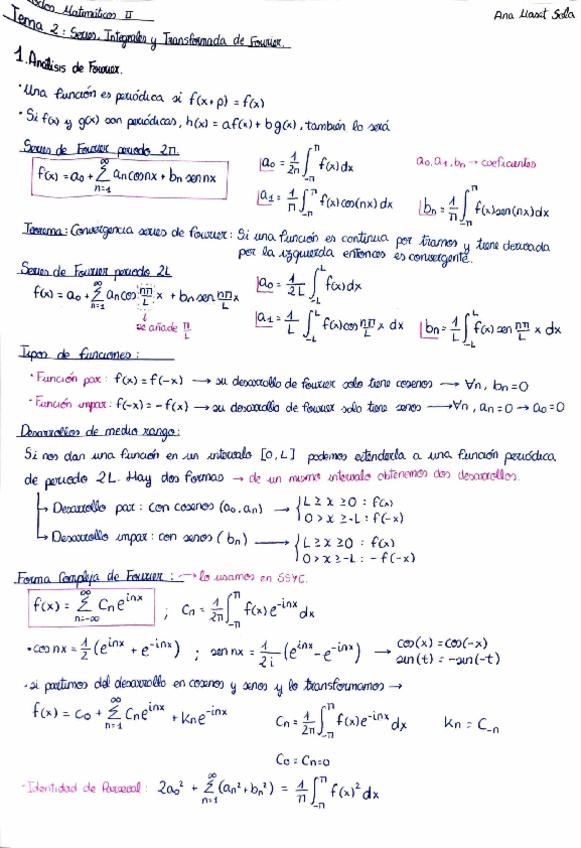 Matemáticos II
Ana Maset Sola
Tema 2: Series, Integrales y Transformada de Fourier.
1. Análisis de Fourier.
· Una función es periódica si f(x+p) = f(x)
· Si f(x) y g(x) son periódicas, h(x) = af(x) + bg(x), también lo será
Series de Fourier periodo 2π.
f(x) = a₀ + ∑_{n=1}^{∞} aₙ cos nx + bₙ sen nx
a₀ = 1/2π ∫_{-π}^{π} f(x) dx
a₀, a₁, bₙ → coeficientes
a₁ = 1/π ∫_{-π}^{π} f(x) cos(nx) dx
bₙ = 1/π ∫_{-π}^{π} f(x) sen(nx) dx
Teorema: Convergencia series de fourier: Si una función es continua por tramos y tiene derivada
por la izquierda entonces es convergente.
Series de Fourier periodo 2L
f(x) = a₀ + ∑_{n=1}^{∞} aₙ cos nπ/L x + bₙ sen nπ/L x
se añade π/L
a₀ = 1/2L ∫_{-L}^{L} f(x) dx
a₁ = 1/L ∫_{-L}^{L} f(x) cos nπ/L x dx
bₙ = 1/L ∫_{-L}^{L} f(x) sen nπ/L x dx
Tipos de funciones:
· Función par: f(x) = f(-x) → su desarrollo de fourier solo tiene cosenos → ∀n, bₙ = 0
· Función impar: f(-x) = -f(x) → su desarrollo de fourier solo tiene senos → ∀n, aₙ = 0 → a₀ = 0
Desarrollos de medio rango:
Si nos dan una función en un intervalo [0, L] podemos extenderla a una función periódica
de periodo 2L. Hay dos formas → de un mismo intervalo obtenemos dos desarrollos.
→ Desarrollo par: con cosenos (a₀, aₙ) → { L ≥ x ≥ 0 : f(x)
0 > x ≥ -L : f(-x)
→ Desarrollo impar: con senos (bₙ) → { L ≥ x ≥ 0 : f(x)
0 > x ≥ -L : -f(-x)
Forma Compleja de Fourier: → lo usamos en SSYC.
f(x) = ∑_{n=-∞}^{∞} Cₙ e^{inx} ; Cₙ = 1/2π ∫_{-π}^{π} f(x) e^{-inx} dx
· cos nx = 1/2 (e^{inx} + e^{-inx}) ; sen nx = 1/2i (e^{inx} - e^{-inx}) → cos(x) = cos(-x)
sin(t) = -sin(-t)
· si partimos del desarrollo en cosenos y senos y lo transformamos →
f(x) = C₀ + ∑_{n=1}^{∞} Cₙ e^{inx} + Kₙ e^{-inx}
Cₙ = 1/2π ∫_{-π}^{π} f(x) e^{-inx} dx
Kₙ = C₋ₙ
C₀ = Cₙ=0
· Identidad de Parseval: 2a₀² + ∑_{n=1}^{∞} (aₙ² + bₙ²) = 1/π ∫_{-π}^{π} f(x)² dx